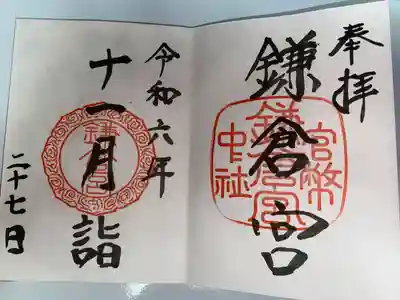 奉拝
鎌倉宮
官幣
中社
鎌倉宮
令和六年
十一月詣
二十七日
鎌倉宮